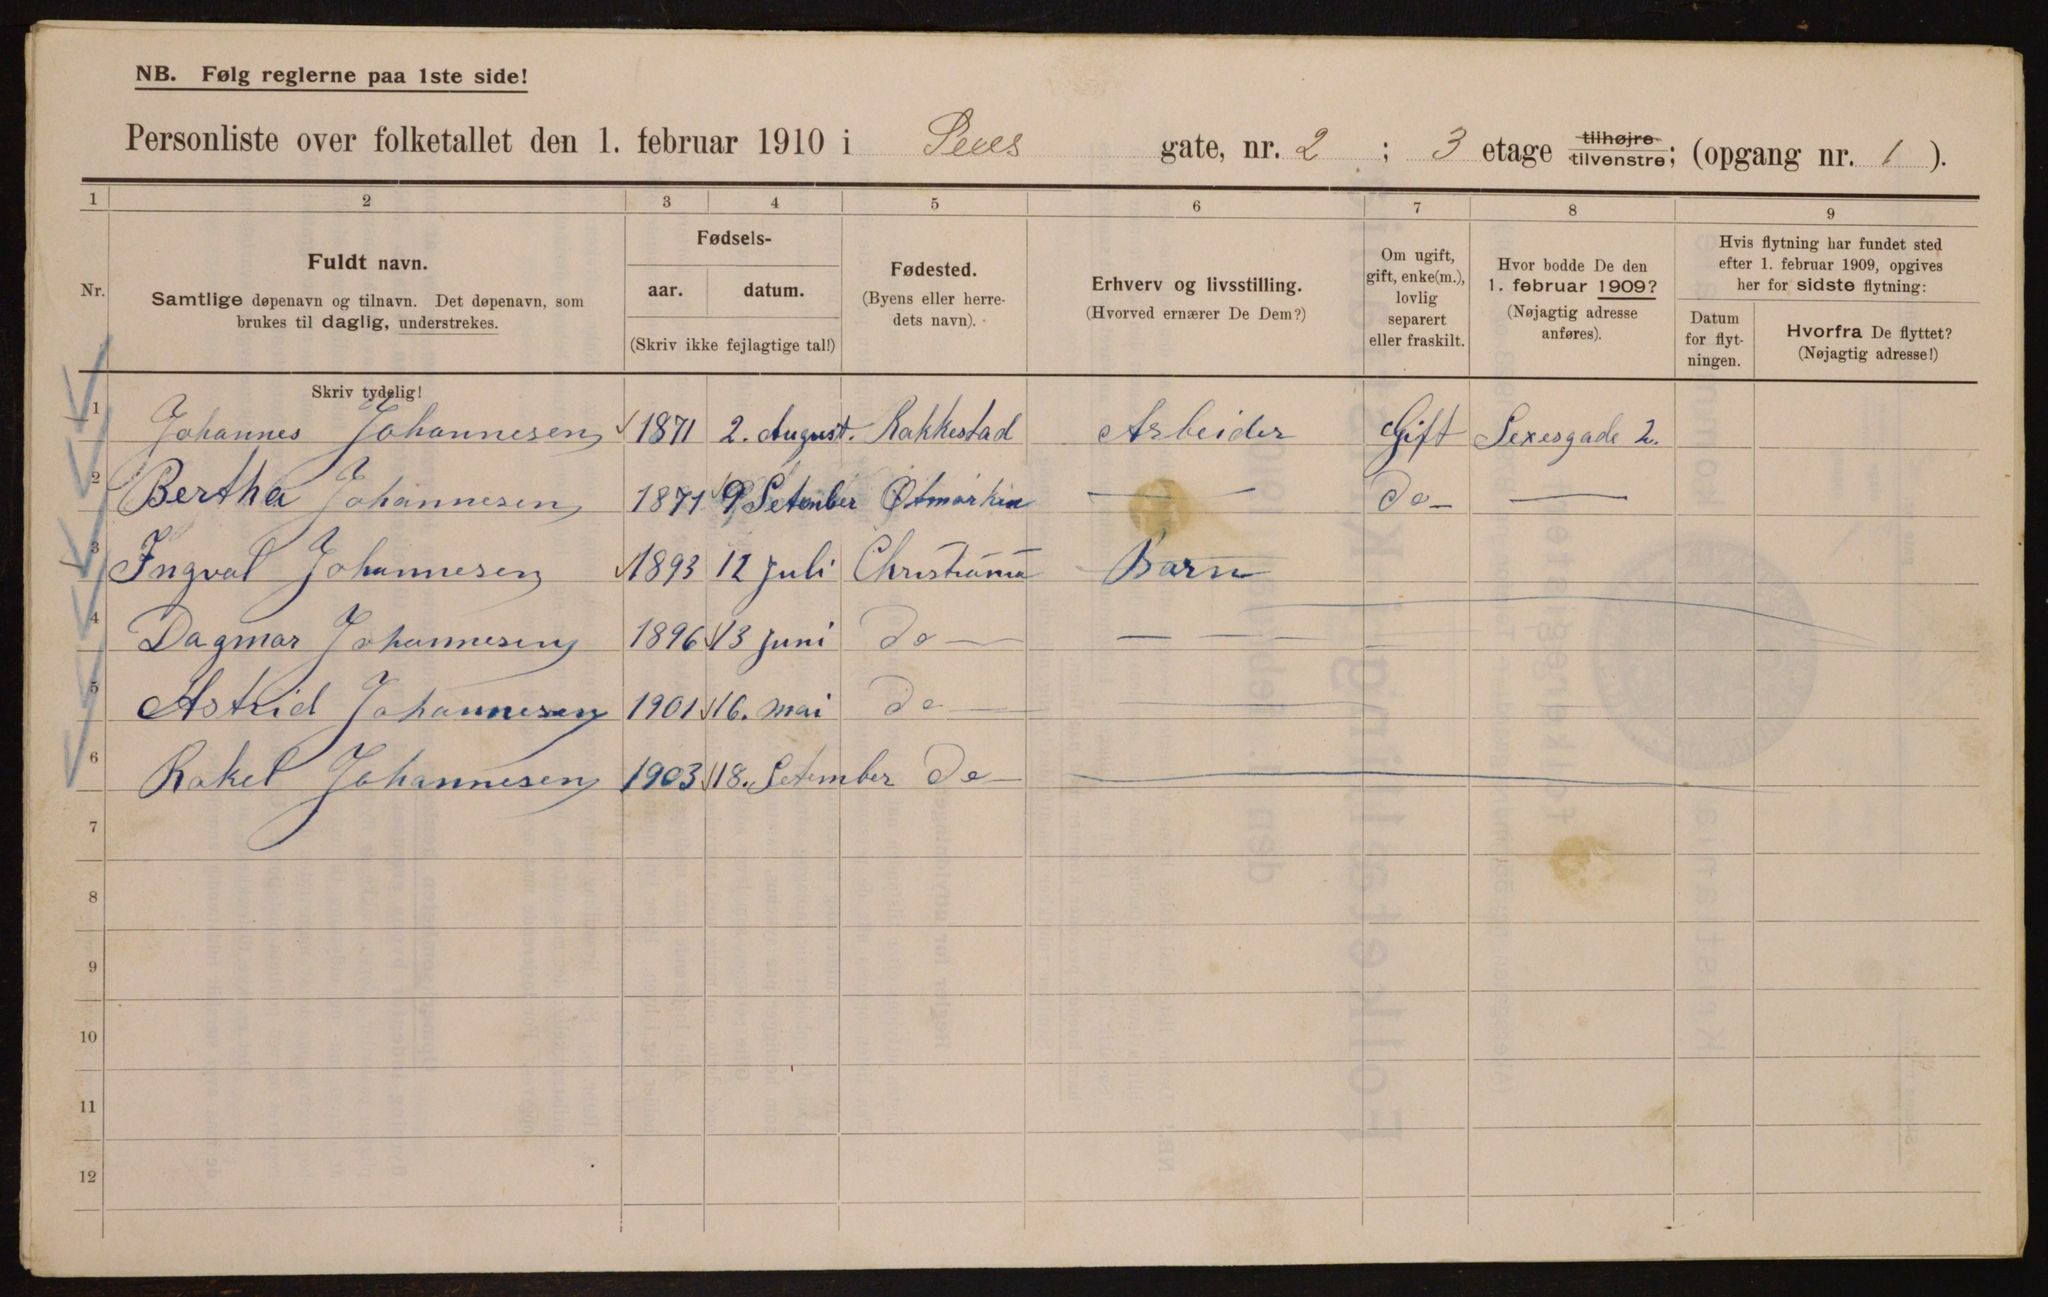 NB. Følg reglerne paa 1ste side!
Personliste over folketallet den 1. februar 1910 i gate, nr. 2 ; 3 etage tilhøjre tilvenstre; (opgang nr. 1 ).
1 2 3 4 5 6 7 8 9
Nr.
Fuldt navn.
Samtlige døpenavn og tilnavn. Det døpenavn, som
brukes til daglig, understrekes.
Fødsels-
aar. datum.
(Skriv ikke fejlagtige tal!)
Fødested.
(Byens eller herre-
dets navn).
Erhverv og livsstilling.
(Hvorved ernærer De Dem?)
Om ugift,
gift, enke(m.),
lovlig
separert
eller fraskilt.
Hvor bodde De den
1. februar 1909?
(Nøjagtig adresse
anføres).
Hvis flytning har fundet sted
efter 1. februar 1909, opgives
her for sidste flytning:
Datum
for flyt-
ningen.
Hvorfra De flyttet?
(Nøjagtig adresse!)
Skriv tydelig!
1 Johannes Johannesen 1871 2. August. Rakkestad Arbeider Gift Sexesgade 2.
2 Bertha Johannesen 1871 9 Setember Øtmarken — Do — —
3 Ingval Johannesen 1893 12 Juli Christiania Barn
4 Dagmar Johannesen 1896 13 Juni Do — — —
5 Astrid Johannesen 1901 16. mai Do — —
6 Rakel Johannesen 1903 18. Setember Do — —
7
8
9
10
11
12